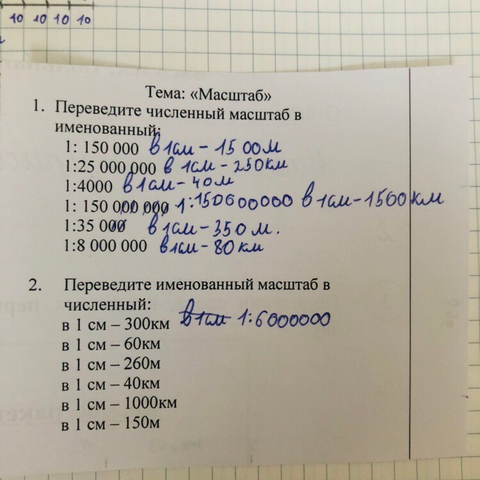 10 10 10 10
Тема: «Масштаб»
1. Переведите численный масштаб в
именованный:
1: 150 000 в 1см - 1500м
1:25 000 000 в 1см - 250км
1:4000 в 1см - 40м
1: 150 000 000 1:150000000 в 1см - 1500км
1:35 000 в 1см - 350м.
1:8 000 000 в 1см - 80км
2. Переведите именованный масштаб в
численный:
в 1 см – 300км в 1см 1:6000000
в 1 см – 60км
в 1 см – 260м
в 1 см – 40км
в 1 см – 1000км
в 1 см – 150м